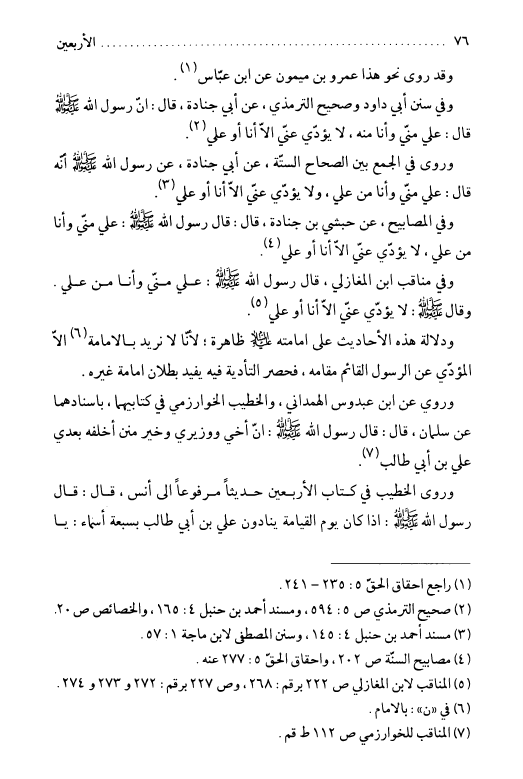 ٧٦ ........................................................ الأربعين
وقد روى نحو هذا عمرو بن ميمون عن ابن عبّاس(١).
وفي سنن أبي داود وصحيح الترمذي، عن أبي جنادة، قال: انّ رسول الله ﷺ
قال: علي منّي وأنا منه، لا يؤدّي عنّي الاّ أنا أو علي(٢).
وروى في الجمع بين الصحاح الستّة، عن أبي جنادة، عن رسول الله ﷺ أنّه
قال: علي منّي وأنا من علي، ولا يؤدّي عنّي الاّ أنا أو علي(٣).
وفي المصابيح، عن حبشي بن جنادة، قال: قال رسول الله ﷺ: علي منّي وأنا
من علي، لا يؤدّي عنّي الاّ أنا أو علي(٤).
وفي مناقب ابن المغازلي، قال رسول الله ﷺ: علي منّي وأنا من علي.
وقال ﷺ: لا يؤدّي عنّي الاّ أنا أو علي(٥).
ودلالة هذه الأحاديث على امامته عليه السلام ظاهرة؛ لأنّا لا نريد بالامامة(٦) الاّ
المؤدّي عن الرسول القائم مقامه، فحصر التأدية فيه يفيد بطلان امامة غيره.
وروي عن ابن عبدوس الهمداني، والخطيب الخوارزمي في كتابيهما، باسنادهما
عن سلمان، قال: قال رسول الله ﷺ: انّ أخي ووزيري وخير من أخلفه بعدي
علي بن أبي طالب(٧).
وروى الخطيب في كتاب الأربعين حديثاً مرفوعاً الى أنس، قال: قال
رسول الله ﷺ: اذا كان يوم القيامة ينادون علي بن أبي طالب بسبعة أسماء: يا
(١) راجع احقاق الحقّ ٥: ٢٣٥ – ٢٤١.
(٢) صحيح الترمذي ص ٥: ٥٩٤، ومسند أحمد بن حنبل ٤: ١٦٥، والخصائص ص ٢٠.
(٣) مسند أحمد بن حنبل ٤: ١٤٥، وسنن المصطفى لابن ماجة ١: ٥٧.
(٤) مصابيح السنّة ص ٢٠٢، واحقاق الحقّ ٥: ٢٧٧ عنه.
(٥) المناقب لابن المغازلي ص ٢٢٢ برقم: ٢٦٨، وص ٢٢٧ برقم: ٢٧٢ و ٢٧٣ و ٢٧٤.
(٦) في «ن»: بالامام.
(٧) المناقب للخوارزمي ص ١١٢ ط قم.